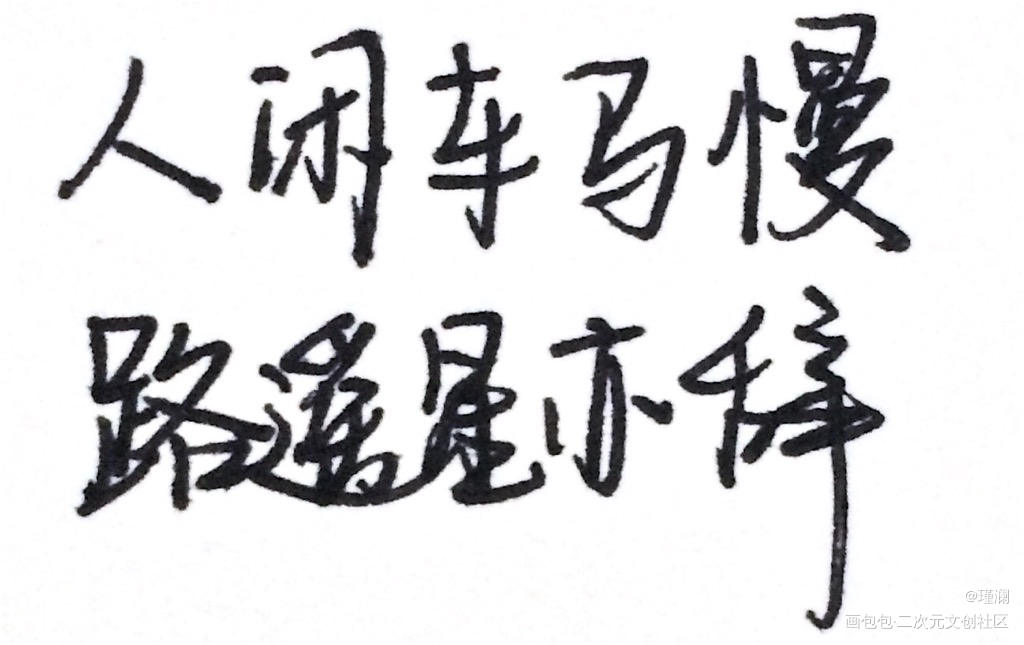 人闲车马慢
路遥星亦辞
@瑾澜
画包包·二次元文创社区